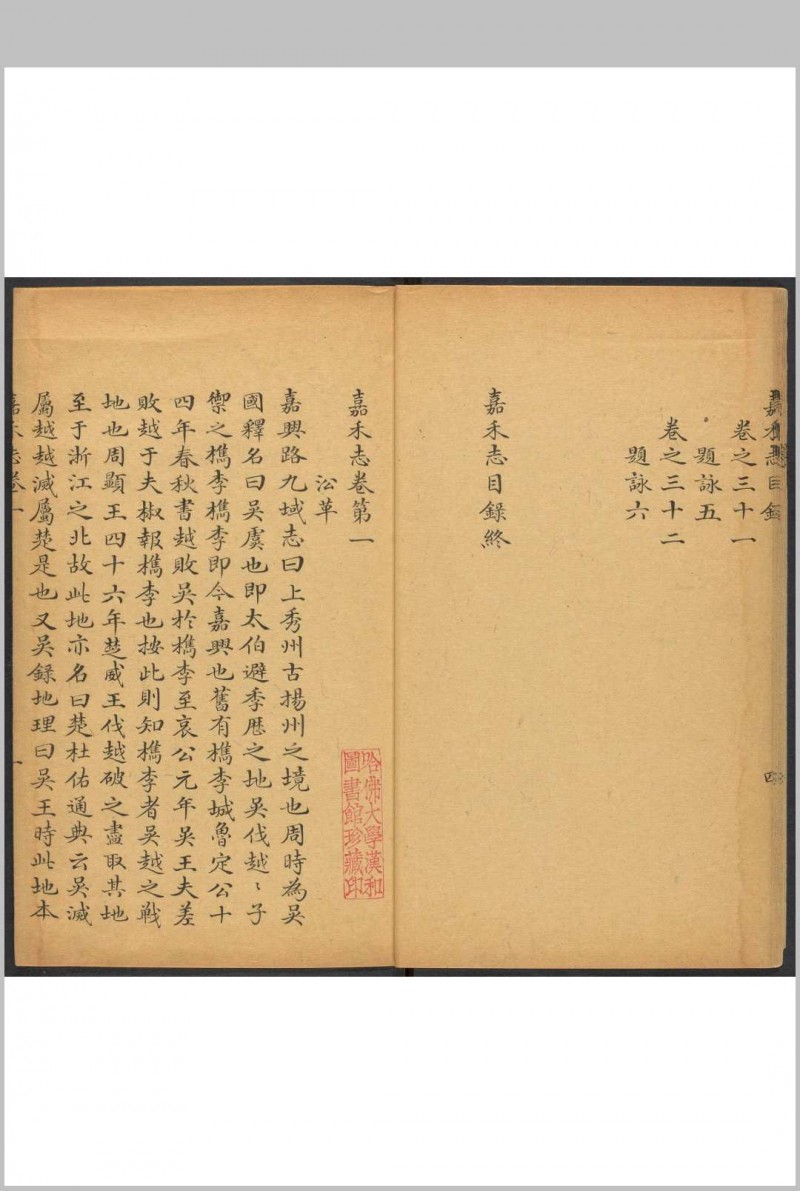 嘉禾志目錄
卷之三十一
題詠五
卷之三十二
題詠六
嘉禾志目錄終
四
嘉禾志卷第一
㳂革
嘉興路九域志曰上秀州古揚州之境也周時為吳
國釋名曰吳虞也即太伯避季歷之地吳伐越〻子
禦之檇李檇李即今嘉興也舊有檇李城魯定公十
四年春秋書越敗吳於檇李至哀公元年吳王夫差
敗越于夫椒報檇李也按此則知檇李者吳越之戰
地也周顯王四十六年楚威王伐越破之盡取其地
至于浙江之北故此地亦名曰楚杜佑通典云吳滅
屬越越滅屬楚是也又吳錄地理曰吳王時此地本
嘉禾志卷一
一
哈佛大學漢和
圖書館珍藏印